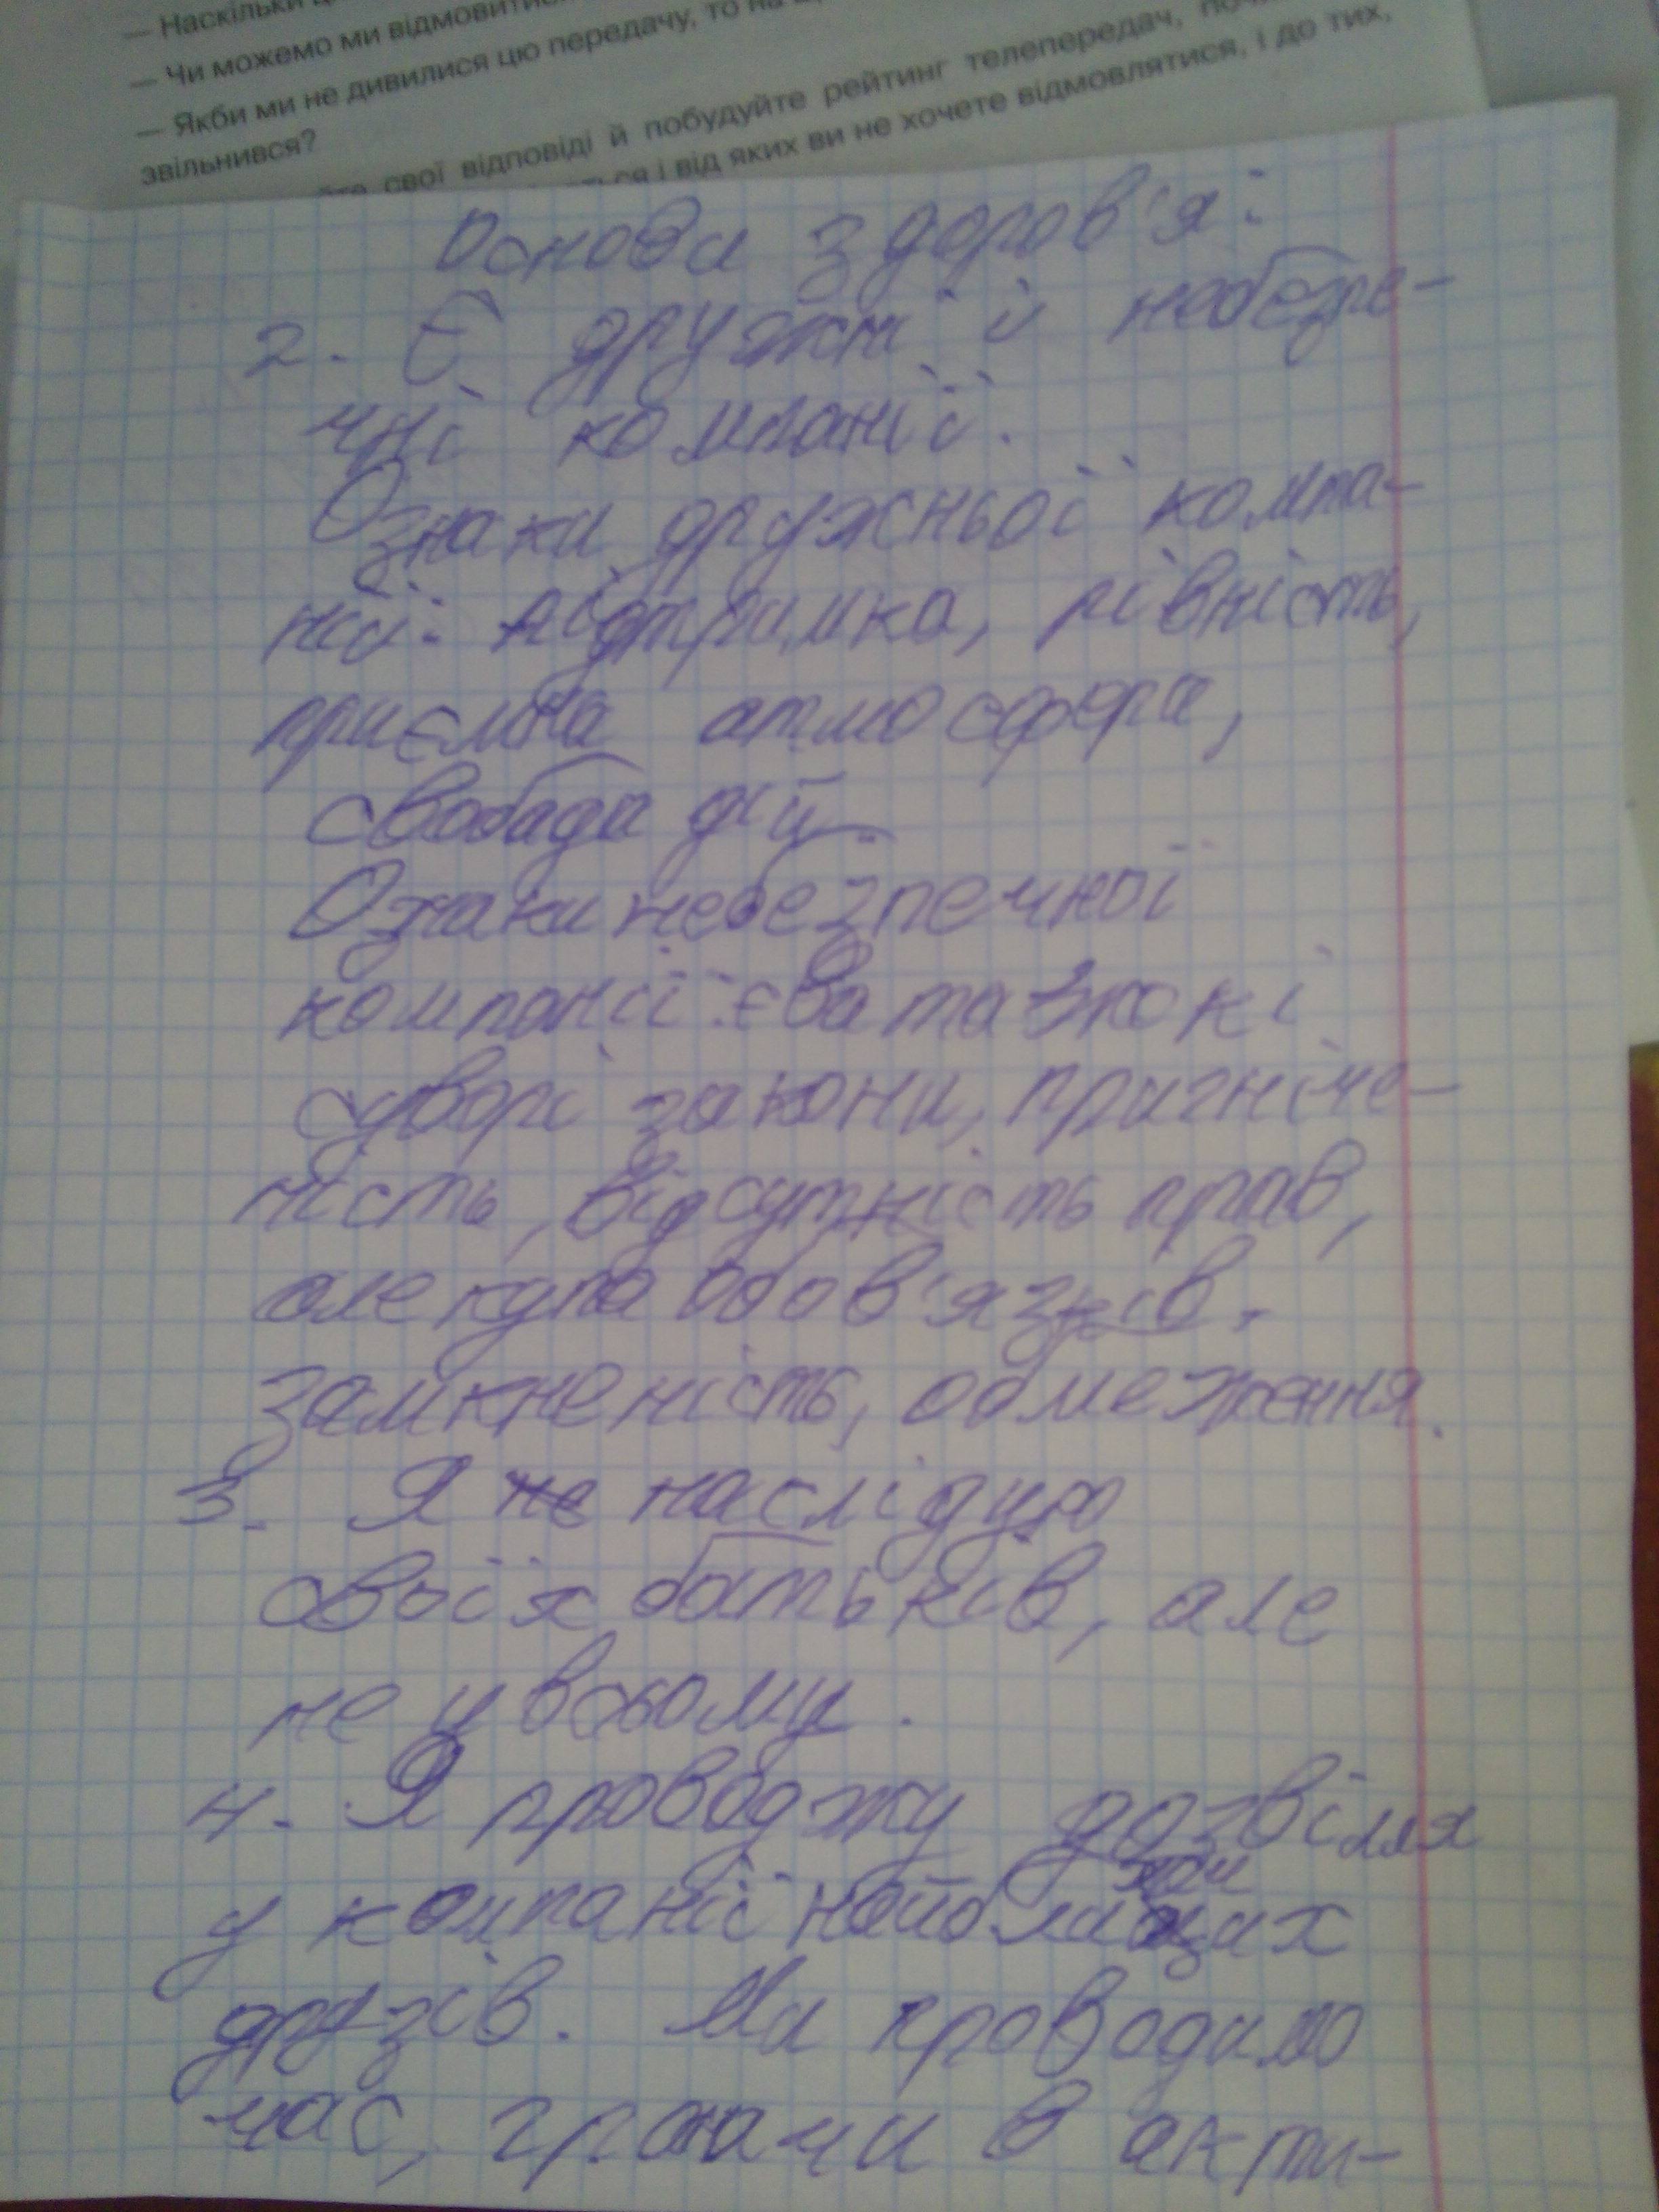 — Наскільки
— Чи можемо ми відмовитис
— Якби ми не дивилися цю передачу, то на
звільнився?
свої відповіді й побудуйте рейтинг телепередач,
і від яких ви не хочете відмовлятися, і до тих,
Основи здоров'я:
2. Є дружні й небезпе-
чні компанії.
Ознаки дружньої компа-
нії: підтримка, рівність,
приємна атмосфера,
свобода дій.
Ознаки небезпечної
компанії:
суворі закони, пригніче-
ність, відсутність прав,
але купа обов'язків,
замкненість, обмеження.
3. Я наслідую
своїх батьків, але
не у всьому.
4. Я проводжу дозвілля
у компанії
друзів. Ми проводимо
час, граючи в акти-